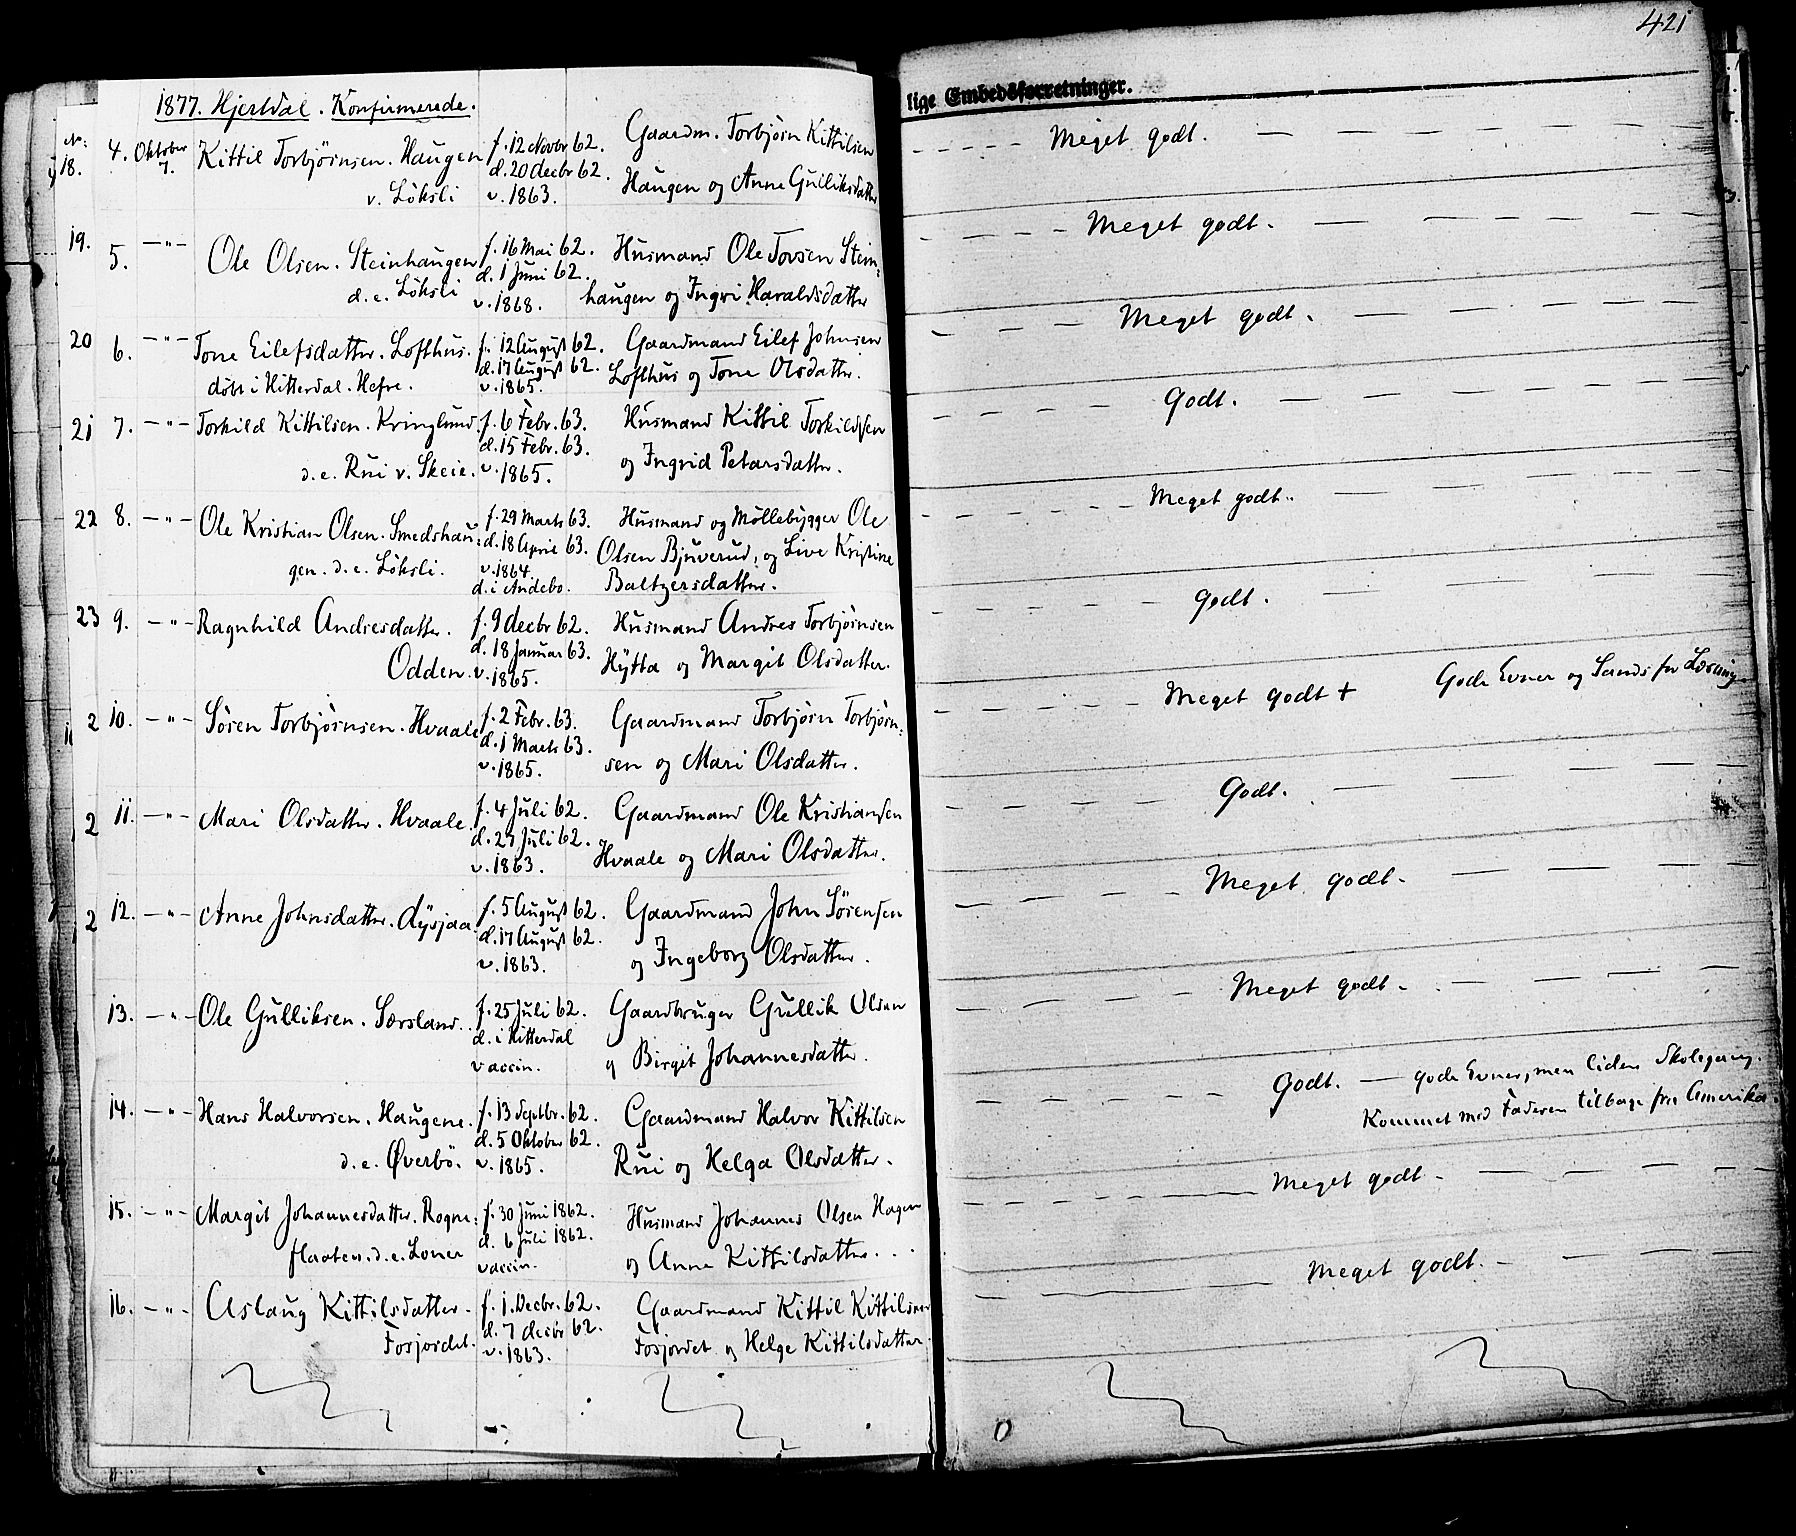 421
1877. Hjertdal. Konfirmerede.
lige Embedsforretninger.
No:
18. 4. Oktober 7. Kittil Torbjörnsen. Haugen
v. Löksli
f. 12 Novbr 62.
d. 20 decbr 62.
v. 1863.
Gaardm. Torbjörn Kittilsen
Haugen og Anne Gulliksdatter
Meget godt.
19. 5. —"— Ole Olsen. Steinhaugen
d. e. Löksli
f. 16 Mai 62.
d. 1 Juni 62.
v. 1868.
Husmand Ole Tovsen Stein-
haugen og Ingri Haraldsdatter
Meget godt.
20 6. —"— Tone Eilefsdatter. Lofthus.
döbt i Hitterdal. Hefre.
f. 12 August 62.
d. 17 August 62.
v. 1865.
Gaardmand Eilef Johnsen
Lofthus og Tone Olsdatter.
Meget godt.
21 7. —"— Torkild Kittilsen. Kringlund.
d. e. Rui v. Skeie.
f. 6 Febr. 63.
d. 15 Febr. 63.
v. 1865.
Husmand Kittil Torkildsen
og Ingrid Petersdatter.
Godt.
22 8. —"— Ole Kristian Olsen. Smedshau-
gen. d. e. Löksli.
f. 29 Marts 63.
d. 18 April 63.
v. 1864.
d. i Andebo.
Husmand og Möllebygger Ole
Olsen Bjuverud, og Live Kristine
Baltzersdatter.
Meget godt.
23 9. —"— Ragnhild Andresdatter.
Odden.
f. 9 decbr 62.
d. 18 Januar 63.
v. 1865.
Husmand Andres Torbjörnsen
Hÿtta og Margit Olsdatter.
Godt.
2 10. —"— Sören Torbjörnsen. Hvaale
f. 2 Febr. 63.
d. 1 Marts 63.
v. 1865.
Gaardmand Torbjörn Torbjörn-
sen og Mari Olsdatter.
Meget godt + Gode Evner og Sands for Læsning
2 11. —"— Mari Olsdatter. Hvaale.
f. 4 Juli 62.
d. 27 Juli 62.
v. 1863.
Gaardmand Ole Kristiansen
Hvaale og Mari Olsdatter.
Godt.
2 12. —"— Anne Johnsdatter. Aÿsjaa
f. 5 August 62.
d. 17 August 62.
v. 1863.
Gaardmand John Sörensen
og Ingeborg Olsdatter.
Meget godt.
13. —"— Ole Gulliksen. Sørsland.
f. 25 Juli 62.
d. i Hitterdal
vaccin.
Gaardbruger Gullik Olsen
og Birgit Johannesdatter.
Meget godt.
14. —"— Hans Halvorsen. Haugene.
d. e. Øverbö.
f. 13 Septbr. 62.
d. 5 Oktober 62.
v. 1865.
Gaardmand Halvor Kittilsen
Rui og Helga Olsdatter.
Godt. — gode Evner, men liden Skolegang.
Kommet med Faderen tilbage fra Amerika.
15. —"— Margit Johannesdatter. Rogne-
flaaten. d. e. Loner
f. 30 Juni 1862.
d. 6 Juli 1862.
vaccin.
Husmand Johannes Olsen Hagen
og Anne Kittilsdatter.
Meget godt.
16. —"— Aslaug Kittilsdatter.
Fosjordet.
f. 1. Decbr. 62.
d. 7 decbr 62.
v. 1863.
Gaardmand Kittil Kittilsen
Fosjordet og Helge Kittilsdatter.
Meget godt.